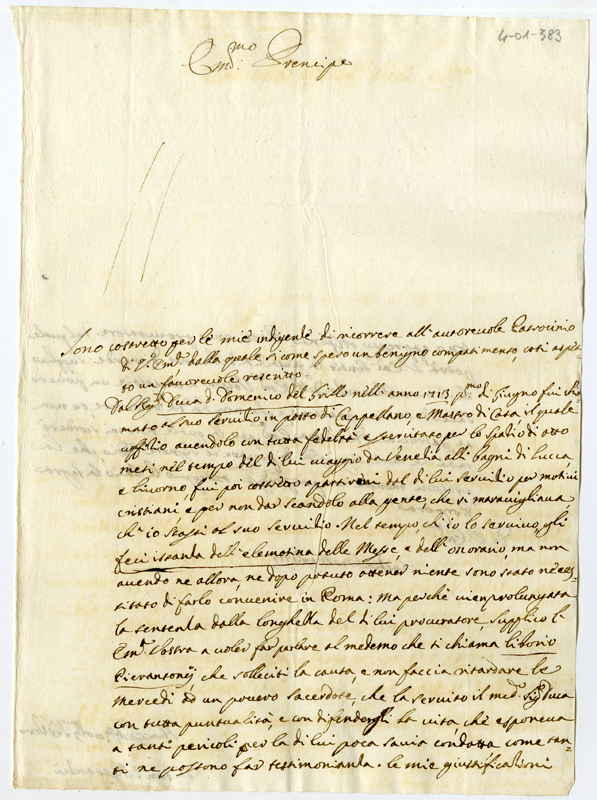 4-01-383
Em.mo Prencipe
Sono costretto per le mie indigenze di ricorrere all'autorevole Patrocinio
di V.ra Em.za dalla quale si come spero un benigno compatimento, così aspet=
to un favorevole rescritto.
Dal Duca d. Domenico del Grillo nell'anno 1713 p.mo di Giugno fui chia=
mato al suo servitio in posto di Cappellano, e Mastro di Casa il quale
uffitio avendolo con tutta fedeltà e servitato per lo spatio di otto
mesi nel tempo del di lui viaggio da Venetia alli bagni di lucca,
e livorno fui poi costretto a partirmi dal di lui servitio per motivi
cristiani e per non dar scandolo alla gente, che si maravigliava
ch'io stassi al suo servitio. Nel tempo, ch'io lo servivo, gli
feci istanza dell'elemosina delle Messe, e dell'onorario, ma non
avendo ne allora, ne dopo potuto ottener niente sono stato neces=
sitato di farlo convenire in Roma: ma perchè vien prolungata
la sentenza dalla longhezza del di lui procuratore, supplico l'
Em.za Vostra a voler far parlare al medemo che si chiama liborio
Pierantonij che solleciti la causa, e non faccia ritardare le
mercedi ad un povero sacerdote, che la servito il med.o Sig.r Duca
con tutta puntualità, e con difendergli la vita, che esponeva
a tanti pericoli per la di lui poca savia condotta come tan=
ti ne possono far testimonianza. le mie giustificationi